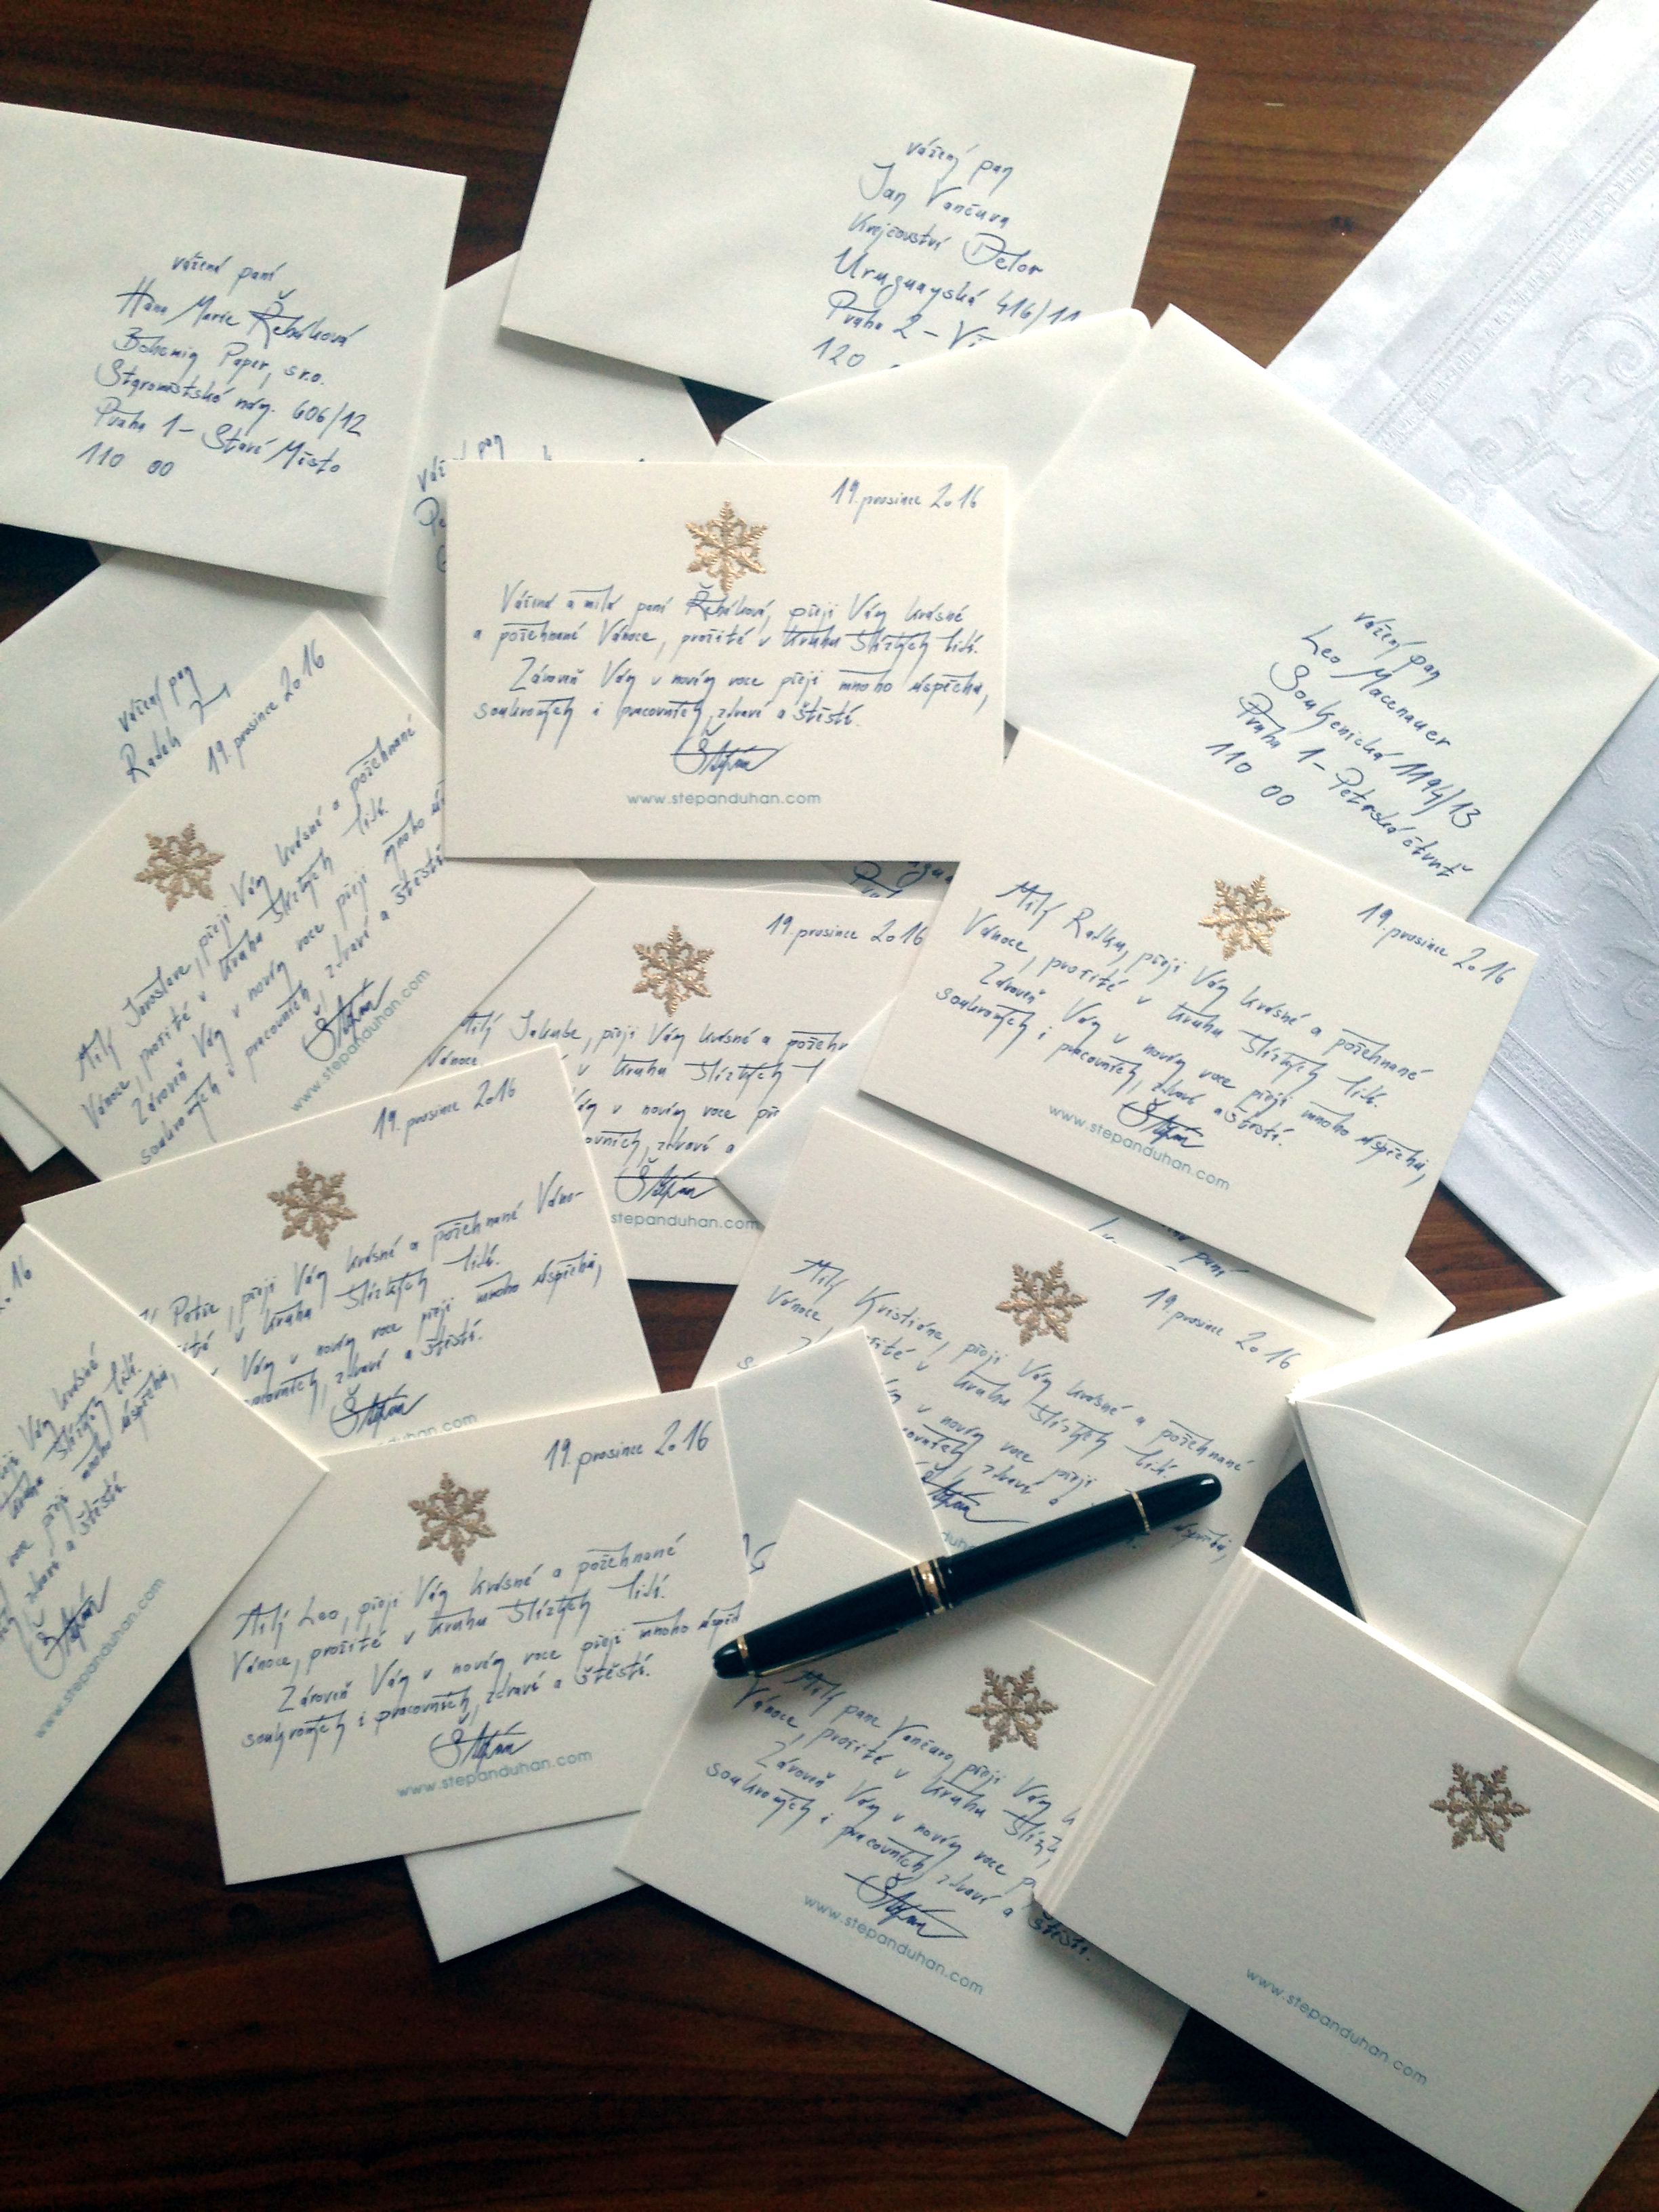 vážený pan
Jan Vančura
Krejčovství Delor
Uruguayská 416/11
Praha 2 –
120
vážená paní
Hana Marie Řeháková
Bohemia Paper, s.r.o.
Staroměstské nám. 606/12
Praha 1 – Staré Město
110 00
pan
19. prosince 2016
Vážená a milá paní Řeháková, přeji Vám krásné
a požehnané Vánoce, prožité v kruhu blízkých lidí.
Zároveň Vám v novém roce přeji mnoho úspěchů,
soukromých i pracovních, zdraví a štěstí.
Štěpán
www.stepanduhan.com
vážený pan
Leo Macenauer
Soukenická 1194/13
Praha 1 – Petrská čtvrť
110 00
vážený pan
Radek
19. prosince 2016
Milý Jaroslave, přeji Vám krásné a požehnané
Vánoce, prožité v kruhu blízkých lidí.
Zároveň Vám v novém roce přeji mnoho
soukromých i pracovních, zdraví a štěstí
Štěpán
www.stepanduhan.com
19. prosince 2016
Milý Jakube, přeji Vám krásné a
Vánoce v kruhu blízkých
v novém roce
zdraví a
Štěpán
stepanduhan.com
19. prosince 2016
Milý Radku, přeji Vám krásné a požehnané
Vánoce, prožité v kruhu blízkých lidí.
Zároveň Vám v novém roce přeji mnoho úspěchů,
soukromých i pracovních, zdraví a štěstí.
Štěpán
www.stepanduhan.com
paní
19. prosince 2016
Petře, přeji Vám krásné a požehnané Váno-
v kruhu blízkých lidí.
Vám v novém roce přeji mnoho úspěchů,
zdraví a štěstí.
Štěpán
19. prosince 2016
Milý Kristiáne, přeji Vám krásné a požehnané
Vánoce, v kruhu blízkých lidí.
v novém roce přeji
zdraví a
16
Vám krásné
blízkých lidí.
roce přeji mnoho úspěchů,
zdraví a štěstí.
Štěpán
www.stepanduhan.com
19. prosince 2016
Milý Leo, přeji Vám krásné a požehnané
Vánoce, prožité v kruhu blízkých lidí.
Zároveň Vám v novém roce přeji mnoho
soukromých i pracovních, zdraví a štěstí.
Štěpán
www.stepanduhan.com
Milý pane Vančuro, přeji Vám
Vánoce, prožité v kruhu
Zároveň Vám v novém roce
soukromých i pracovních, zdraví a štěstí.
Štěpán
www.stepanduhan.com
www.stepanduhan.com